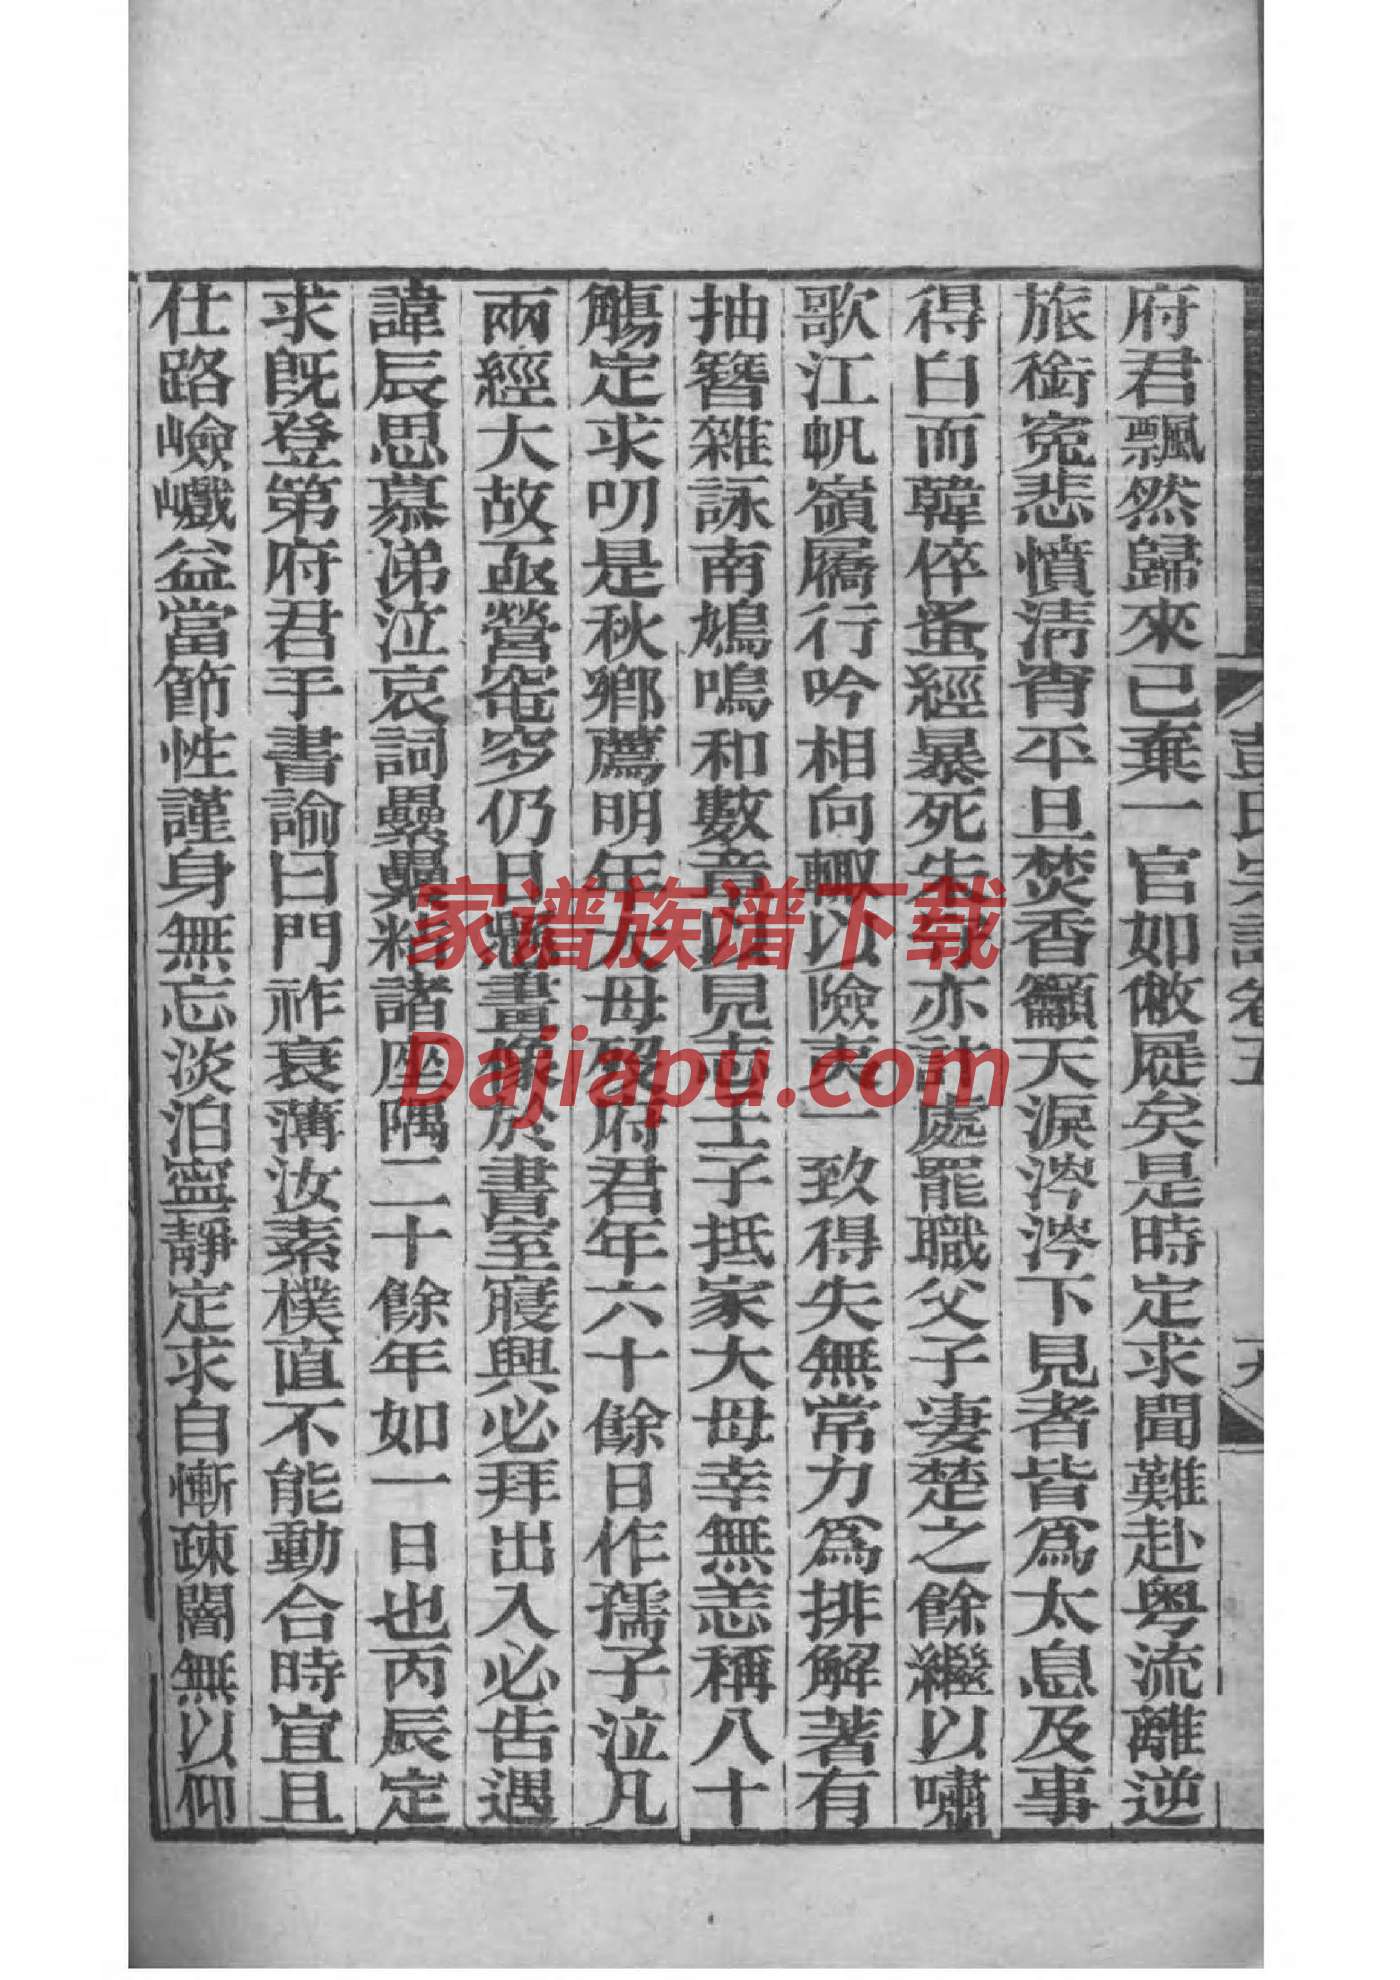 府君飄然歸來已棄一官如敝屣矣是時定求聞難赴粤流離逆
旅銜寃悲憤清宵平旦焚香籲天淚涔涔下見者皆爲太息及事
得白而韓倅蚤經暴死先君亦計處罷職父子凄楚之餘繼以嘯
歌江帆嶺屩行吟相向輙以險夷一致得失無常力爲排解著有
抽簪雜詠南鳩鳴和數章以見志壬子抵家大母幸無恙稱八十
觴定求叨是秋鄉薦明年大母歿府君年六十餘日作孺子泣凡
兩經大故亟營窀穸仍日懸畫像於書室寢興必拜出入必告遇
諱辰思慕涕泣哀詞纍纍粘諸座隅二十餘年如一日也丙辰定
求旣登第府君手書諭曰門祚衰薄汝素樸直不能動合時宜且
仕路嶮巇益當節性謹身無忘淡泊寧靜定求自慚疎闇無以仰
彭氏宗譜卷五
九
家谱族谱下载
Dajiapu.com